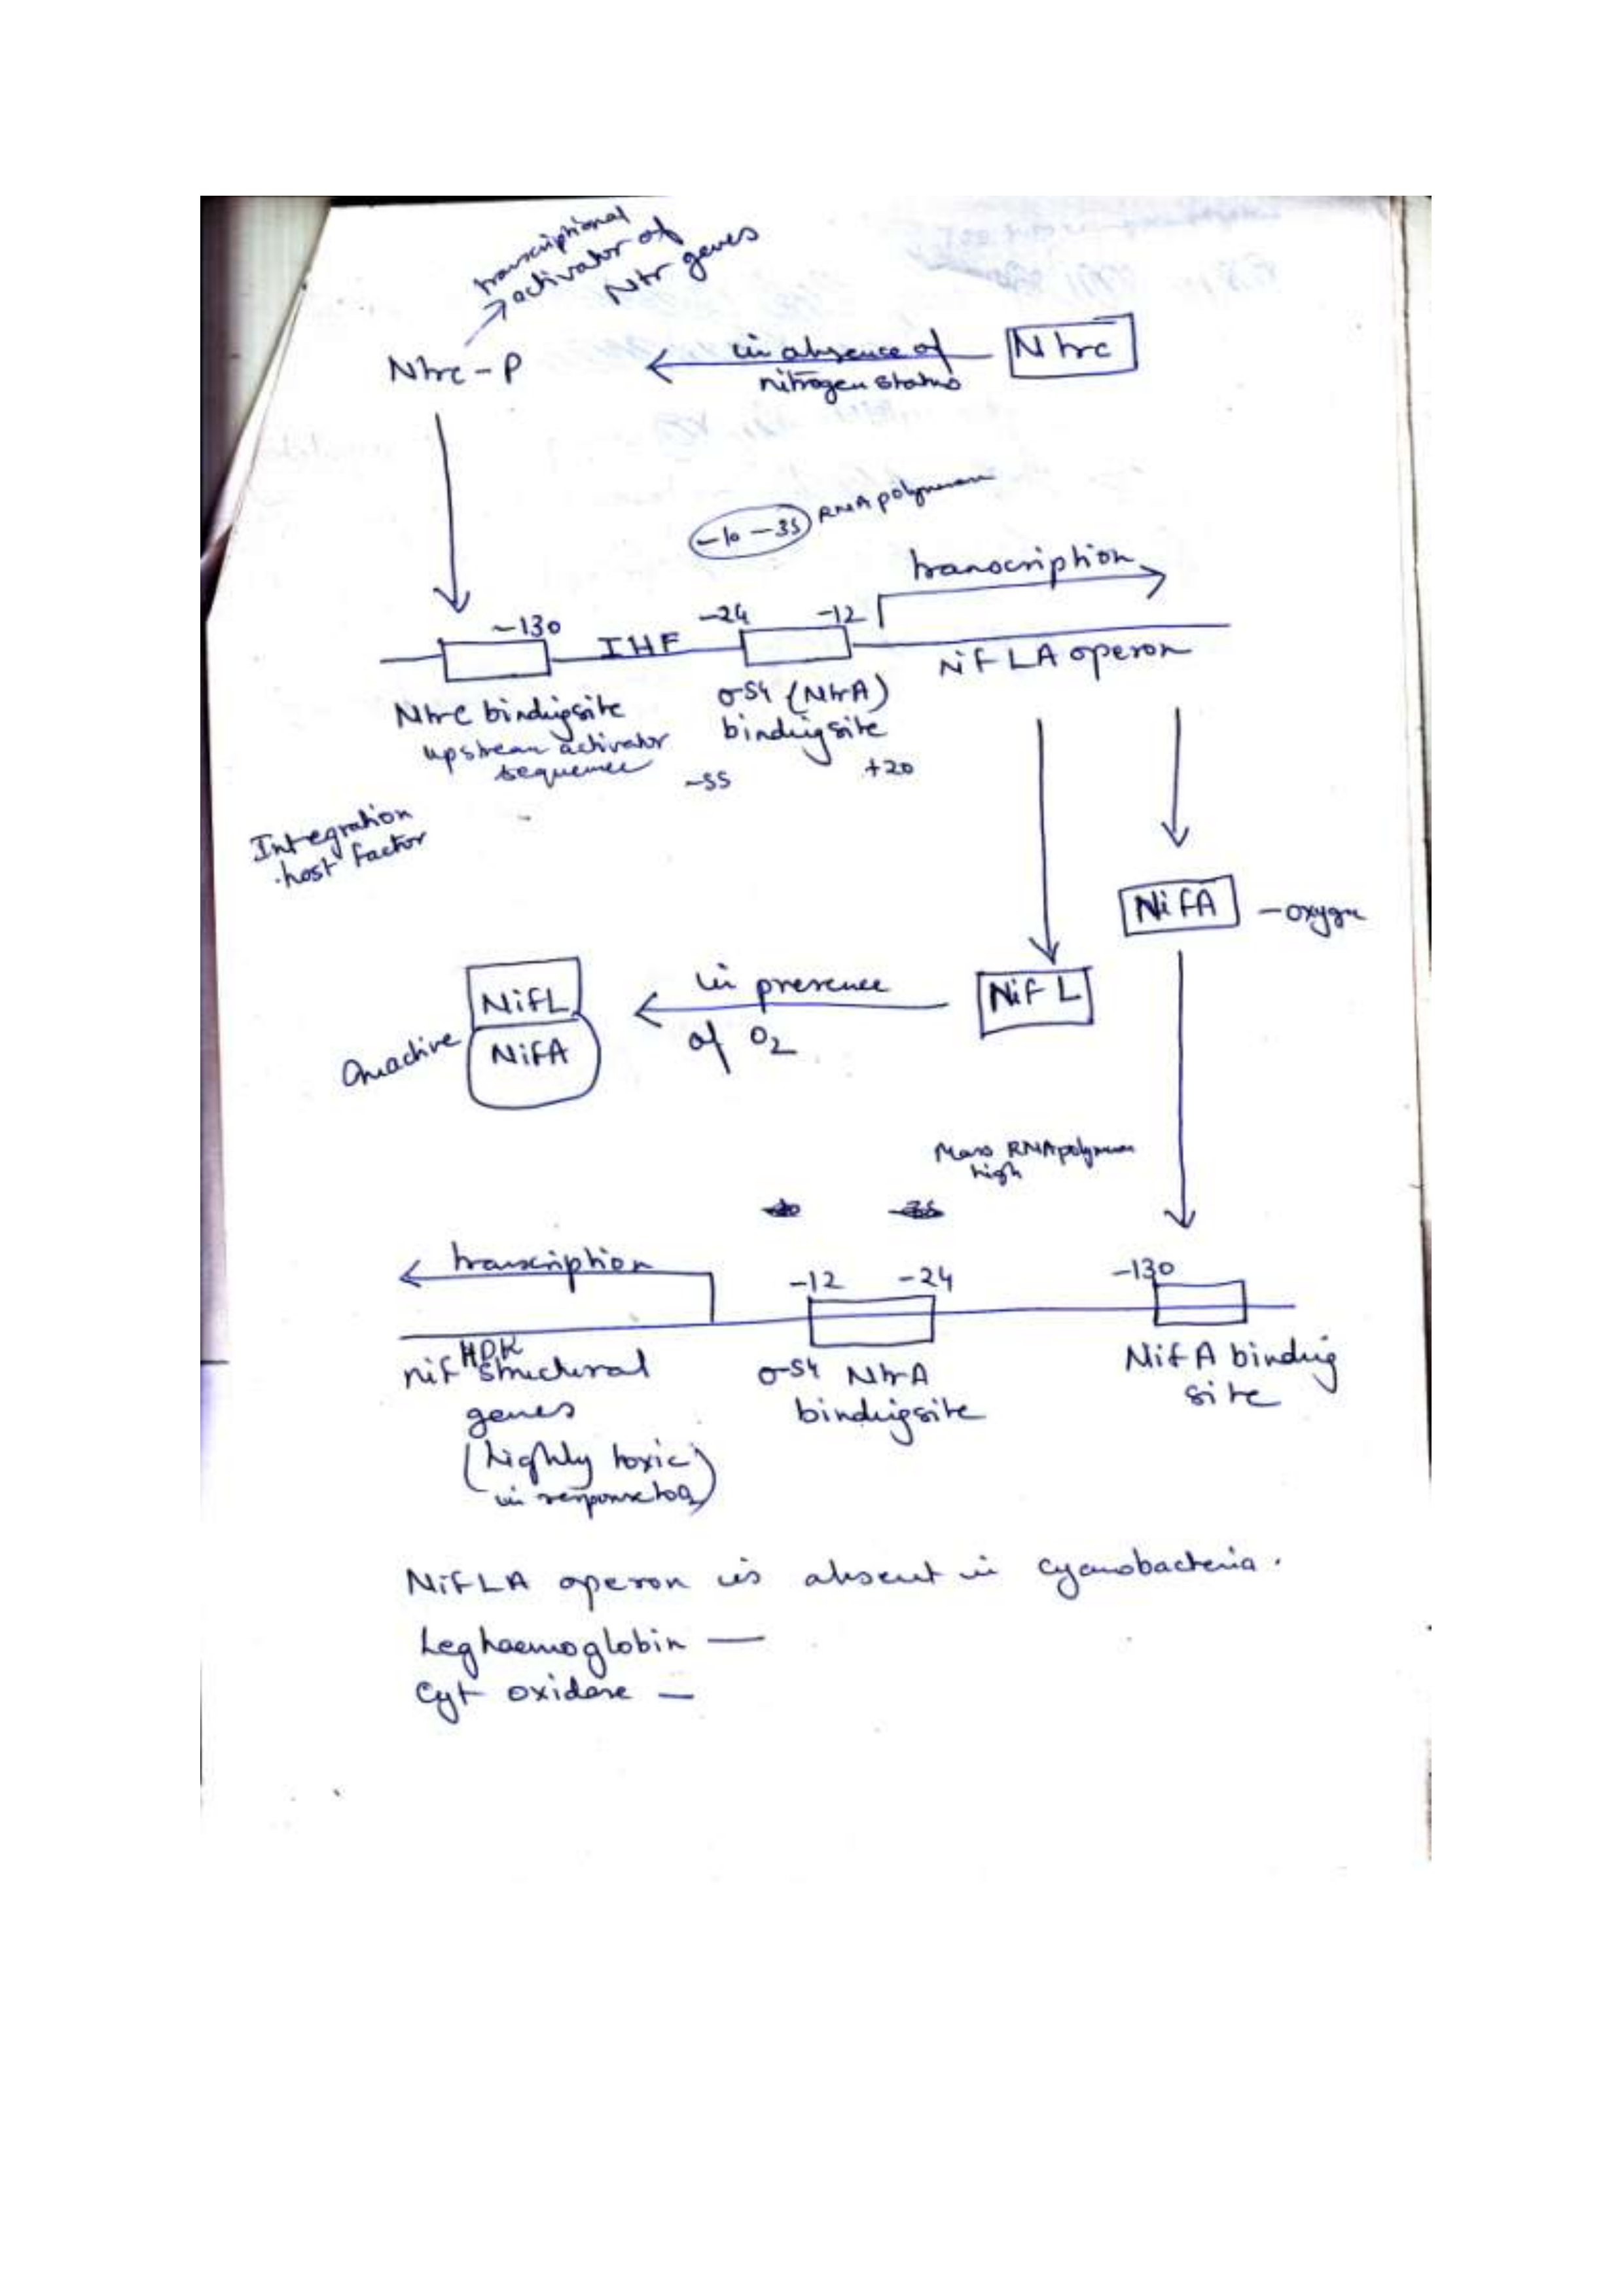 transcriptional
activator of
Ntr genes
Ntrc - P
in absence of
nitrogen status
Ntrc
-10 -35 RNA polymerase
transcription
~130
IHF
-24
-12
Nif LA operon
Ntrc binding site
upstream activator
sequence
σ54 (NtrA)
binding site
-55
+20
Integration
host factor
NifA
- oxygen
NifL
NifA
in presence
of O2
Nif L
RNA polymerase
high
transcription
-12
-24
-130
HDK
nif structural
genes
(highly toxic
in response to O2)
σ54 NtrA
binding site
NifA binding
site
NifLA operon is absent in cyanobacteria.
Leghaemoglobin —
Cyt oxidase —